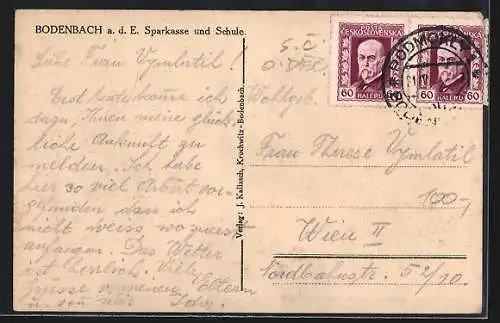 BODENBACH a. d. E. Sparkasse und Schule.
Liebe Frau Vymlatil!
Erst heute komme ich
dazu, Ihnen meine glück-
liche Ankunft zu
melden. Ich habe
hier so viel Arbeit vor-
gefunden dass ich
nicht weiss wo zuerst
anfangen. Das Wetter
ist herrlich. Viele
Grüsse v. meinen Eltern
u. von mir
Verlag: J. Kallasch, Krochwitz-Bodenbach.
POŠTA
ČESKOSLOVENSKÁ
60 HALÉŘŮ 60
60 60
PODMOKLY
Wohlgeb.
Frau Therese Vymlatil
100,-
Wien II
Nordbahnstr. 52/10.